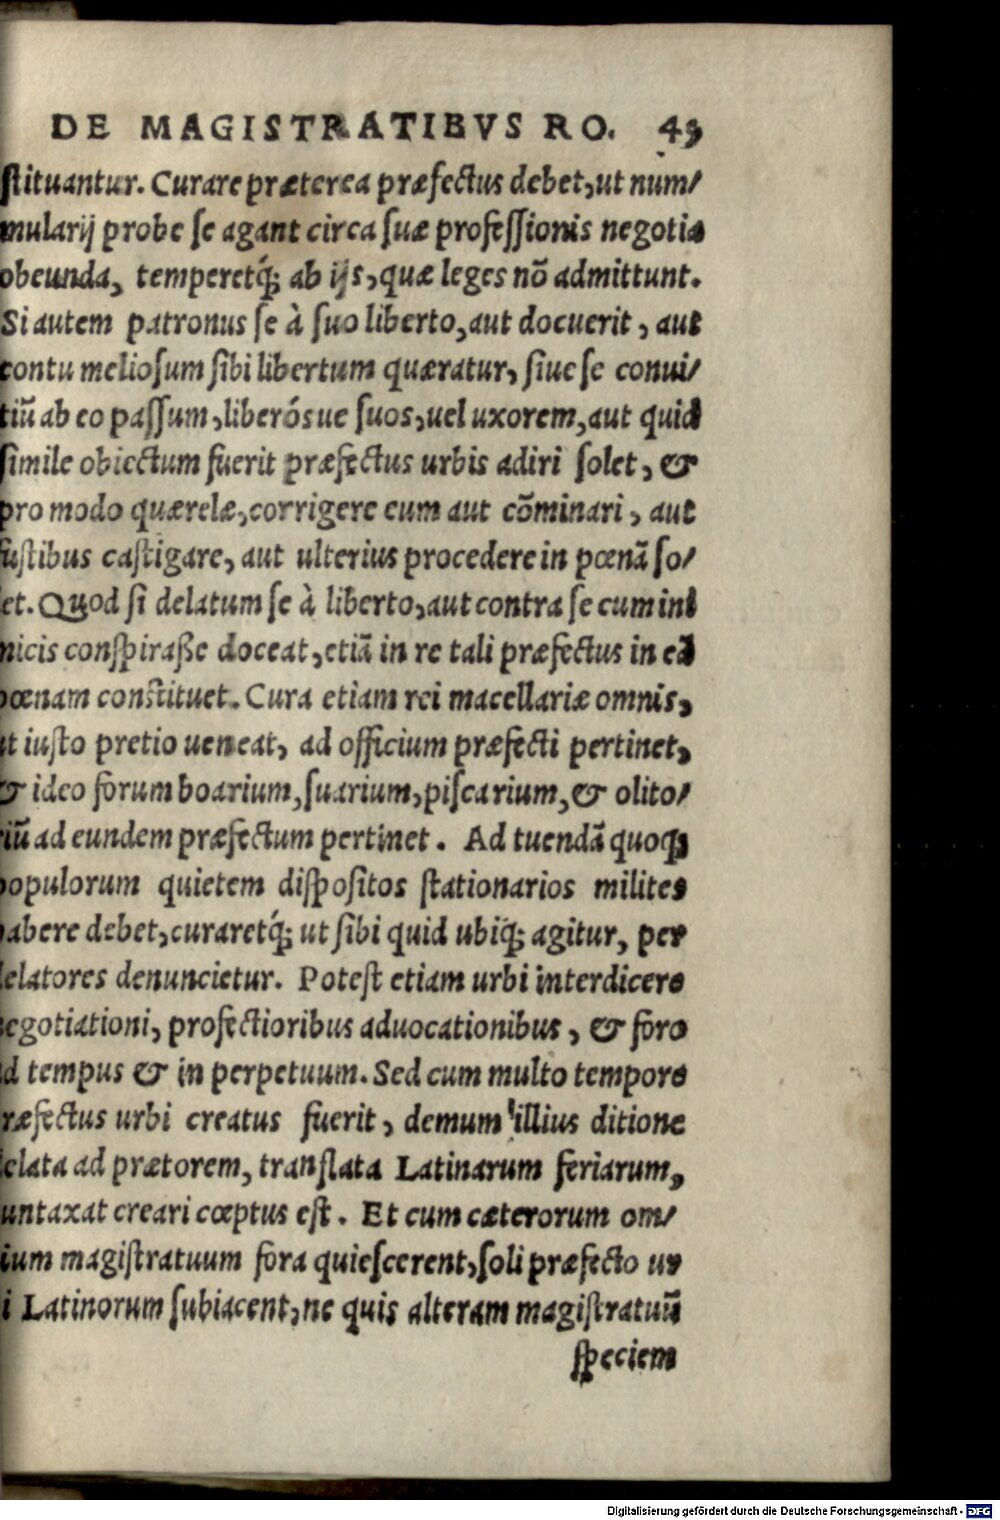 DE MAGISTRATIBVS RO. 45
stituantur. Curare præterea præfectus debet, ut num/
mularij probe se agant circa suæ professionis negotia
obeunda, temperetq́; ab ijs, quæ leges nō admittunt.
Si autem patronus se à suo liberto, aut docuerit, aut
contu meliosum sibi libertum quæratur, siue se conui/
tiū ab eo passum, liberósue suos, uel uxorem, aut quid
simile obiectum fuerit præfectus urbis adiri solet, &
pro modo quærelæ, corrigere eum aut cōminari, aut
fustibus castigare, aut ulterius procedere in pœnā so/
et. Quod si delatum se à liberto, aut contra se cum ini
nicis conspirasse doceat, etiā in re tali præfectus in eā
pœnam constituet. Cura etiam rei macellariæ omnis,
ut iusto pretio ueneat, ad officium præfecti pertinet,
& ideo forum boarium, suarium, piscarium, & olito/
riū ad eundem præfectum pertinet. Ad tuendā quoq;
populorum quietem dispositos stationarios milites
abere debet, curaretq́; ut sibi quid ubiq; agitur, per
elatores denuncietur. Potest etiam urbi interdicere
egotiationi, profectioribus aduocationibus, & foro
d tempus & in perpetuum. Sed cum multo tempore
ræfectus urbi creatus fuerit, demum illius ditione
elata ad prætorem, translata Latinarum feriarum,
untaxat creari cœptus est. Et cum cæterorum om/
ium magistratuum fora quiescerent, soli præfecto ur
i Latinorum subiacent, ne quis alteram magistratuū
speciem
Digitalisierung gefördert durch die Deutsche Forschungsgemeinschaft - DFG